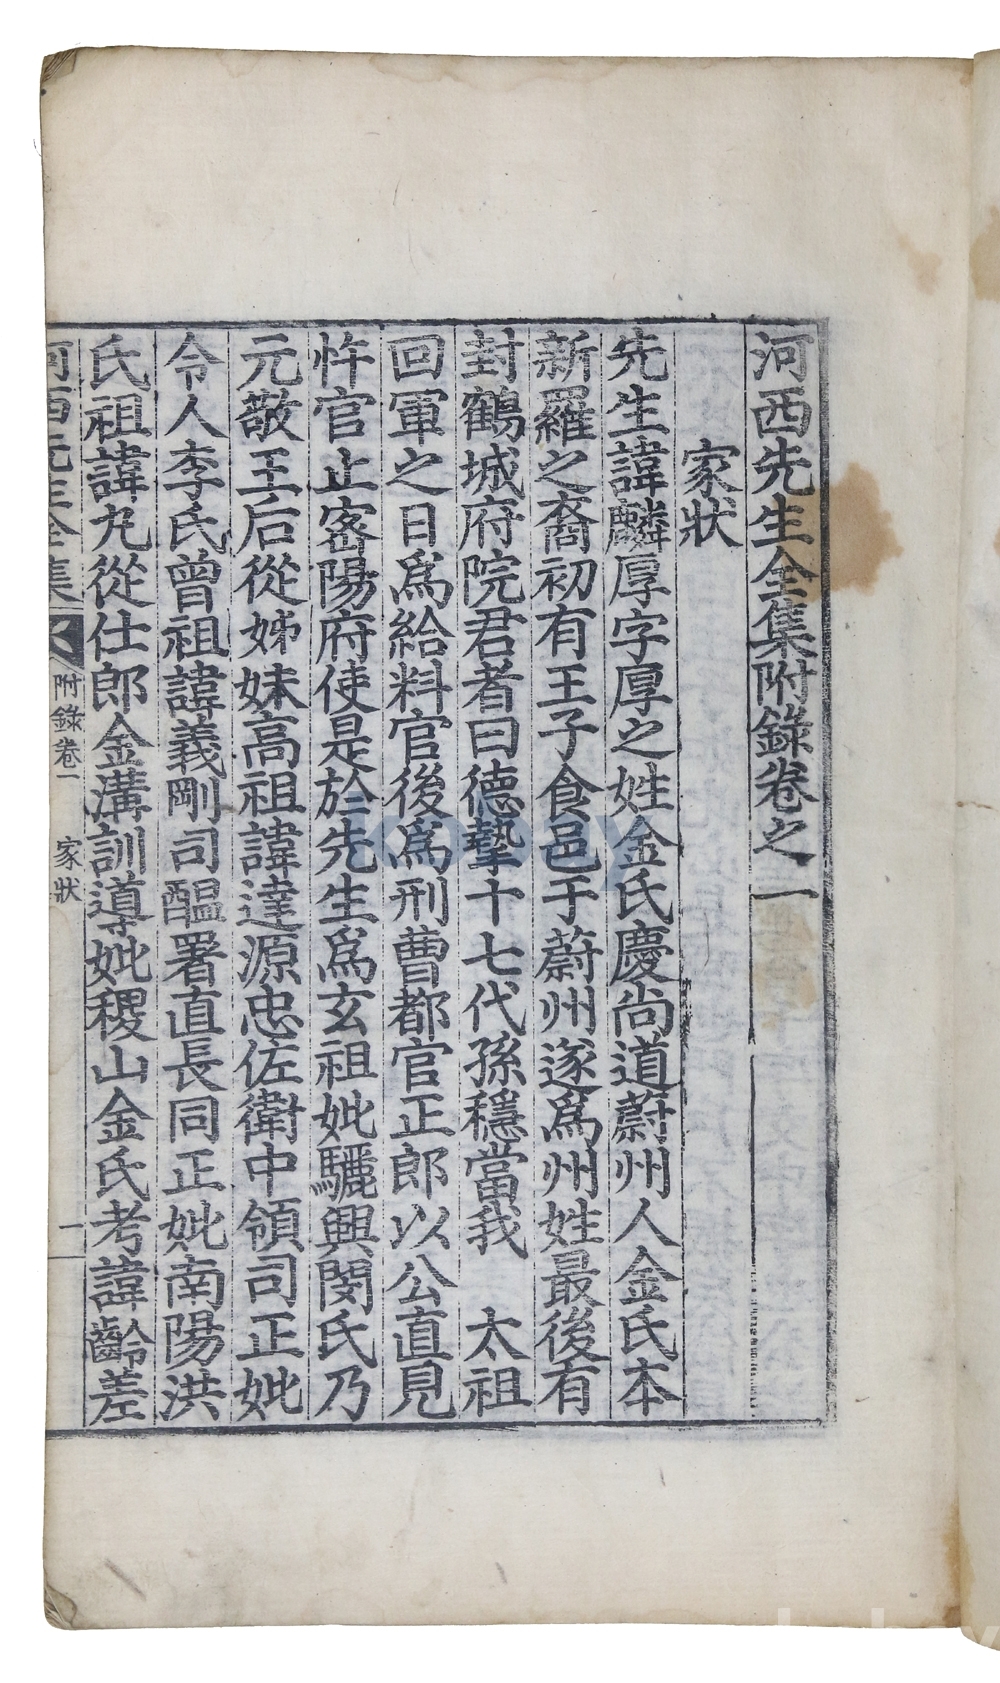 河西先生全集附錄卷之一
家狀
先生諱麟厚字厚之姓金氏慶尚道蔚州人金氏本
新羅之裔初有王子食邑于蔚州遂爲州姓最後有
封鶴城府院君者曰德摯十七代孫穩當我 太祖
回軍之日爲給料官後爲刑曹都官正郎以公直見
忤官止密陽府使是於先生爲玄祖妣驪興閔氏乃
元敬王后從姊妹高祖諱達源忠佐衛中領司正妣
令人李氏曾祖諱義剛司醞署直長同正妣南陽洪
氏祖諱丸從仕郎金溝訓導妣稷山金氏考諱齡差
河西先生全集
附錄卷一
家狀
一
kobay